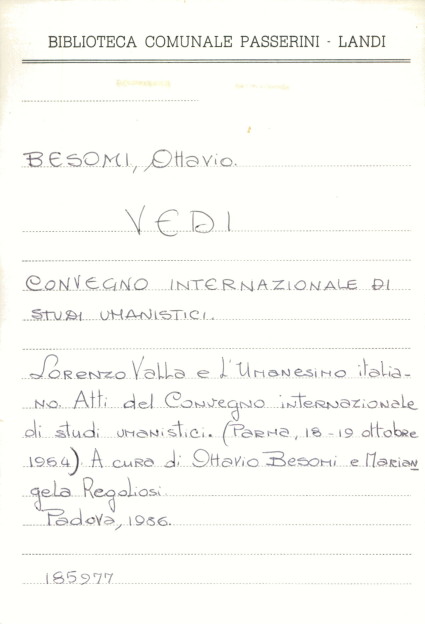 BIBLIOTECA COMUNALE PASSERINI - LANDI
BESOMI, Ottavio.
VEDI
CONVEGNO INTERNAZIONALE DI
STUDI UMANISTICI.
LORENZO Valla e l'Umanesimo italia-
no. Atti del Convegno internazionale
di studi umanistici. (Parma, 18-19 ottobre
1984) A cura di Ottavio Besomi e Marian
gela Regoliosi.
Padova, 1986.
185977